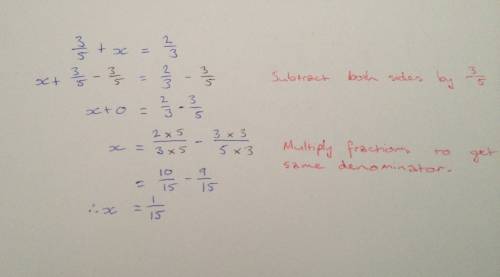 3/5 + x = 2/3
x + 3/5 - 3/5 = 2/3 - 3/5
Subtract both sides by -3/5
x + 0 = 2/3 - 3/5
x = 2×5/3×5 - 3×3/5×3
Multiply fractions to get
same denominator.
= 10/15 - 9/15
∴ x = 1/15